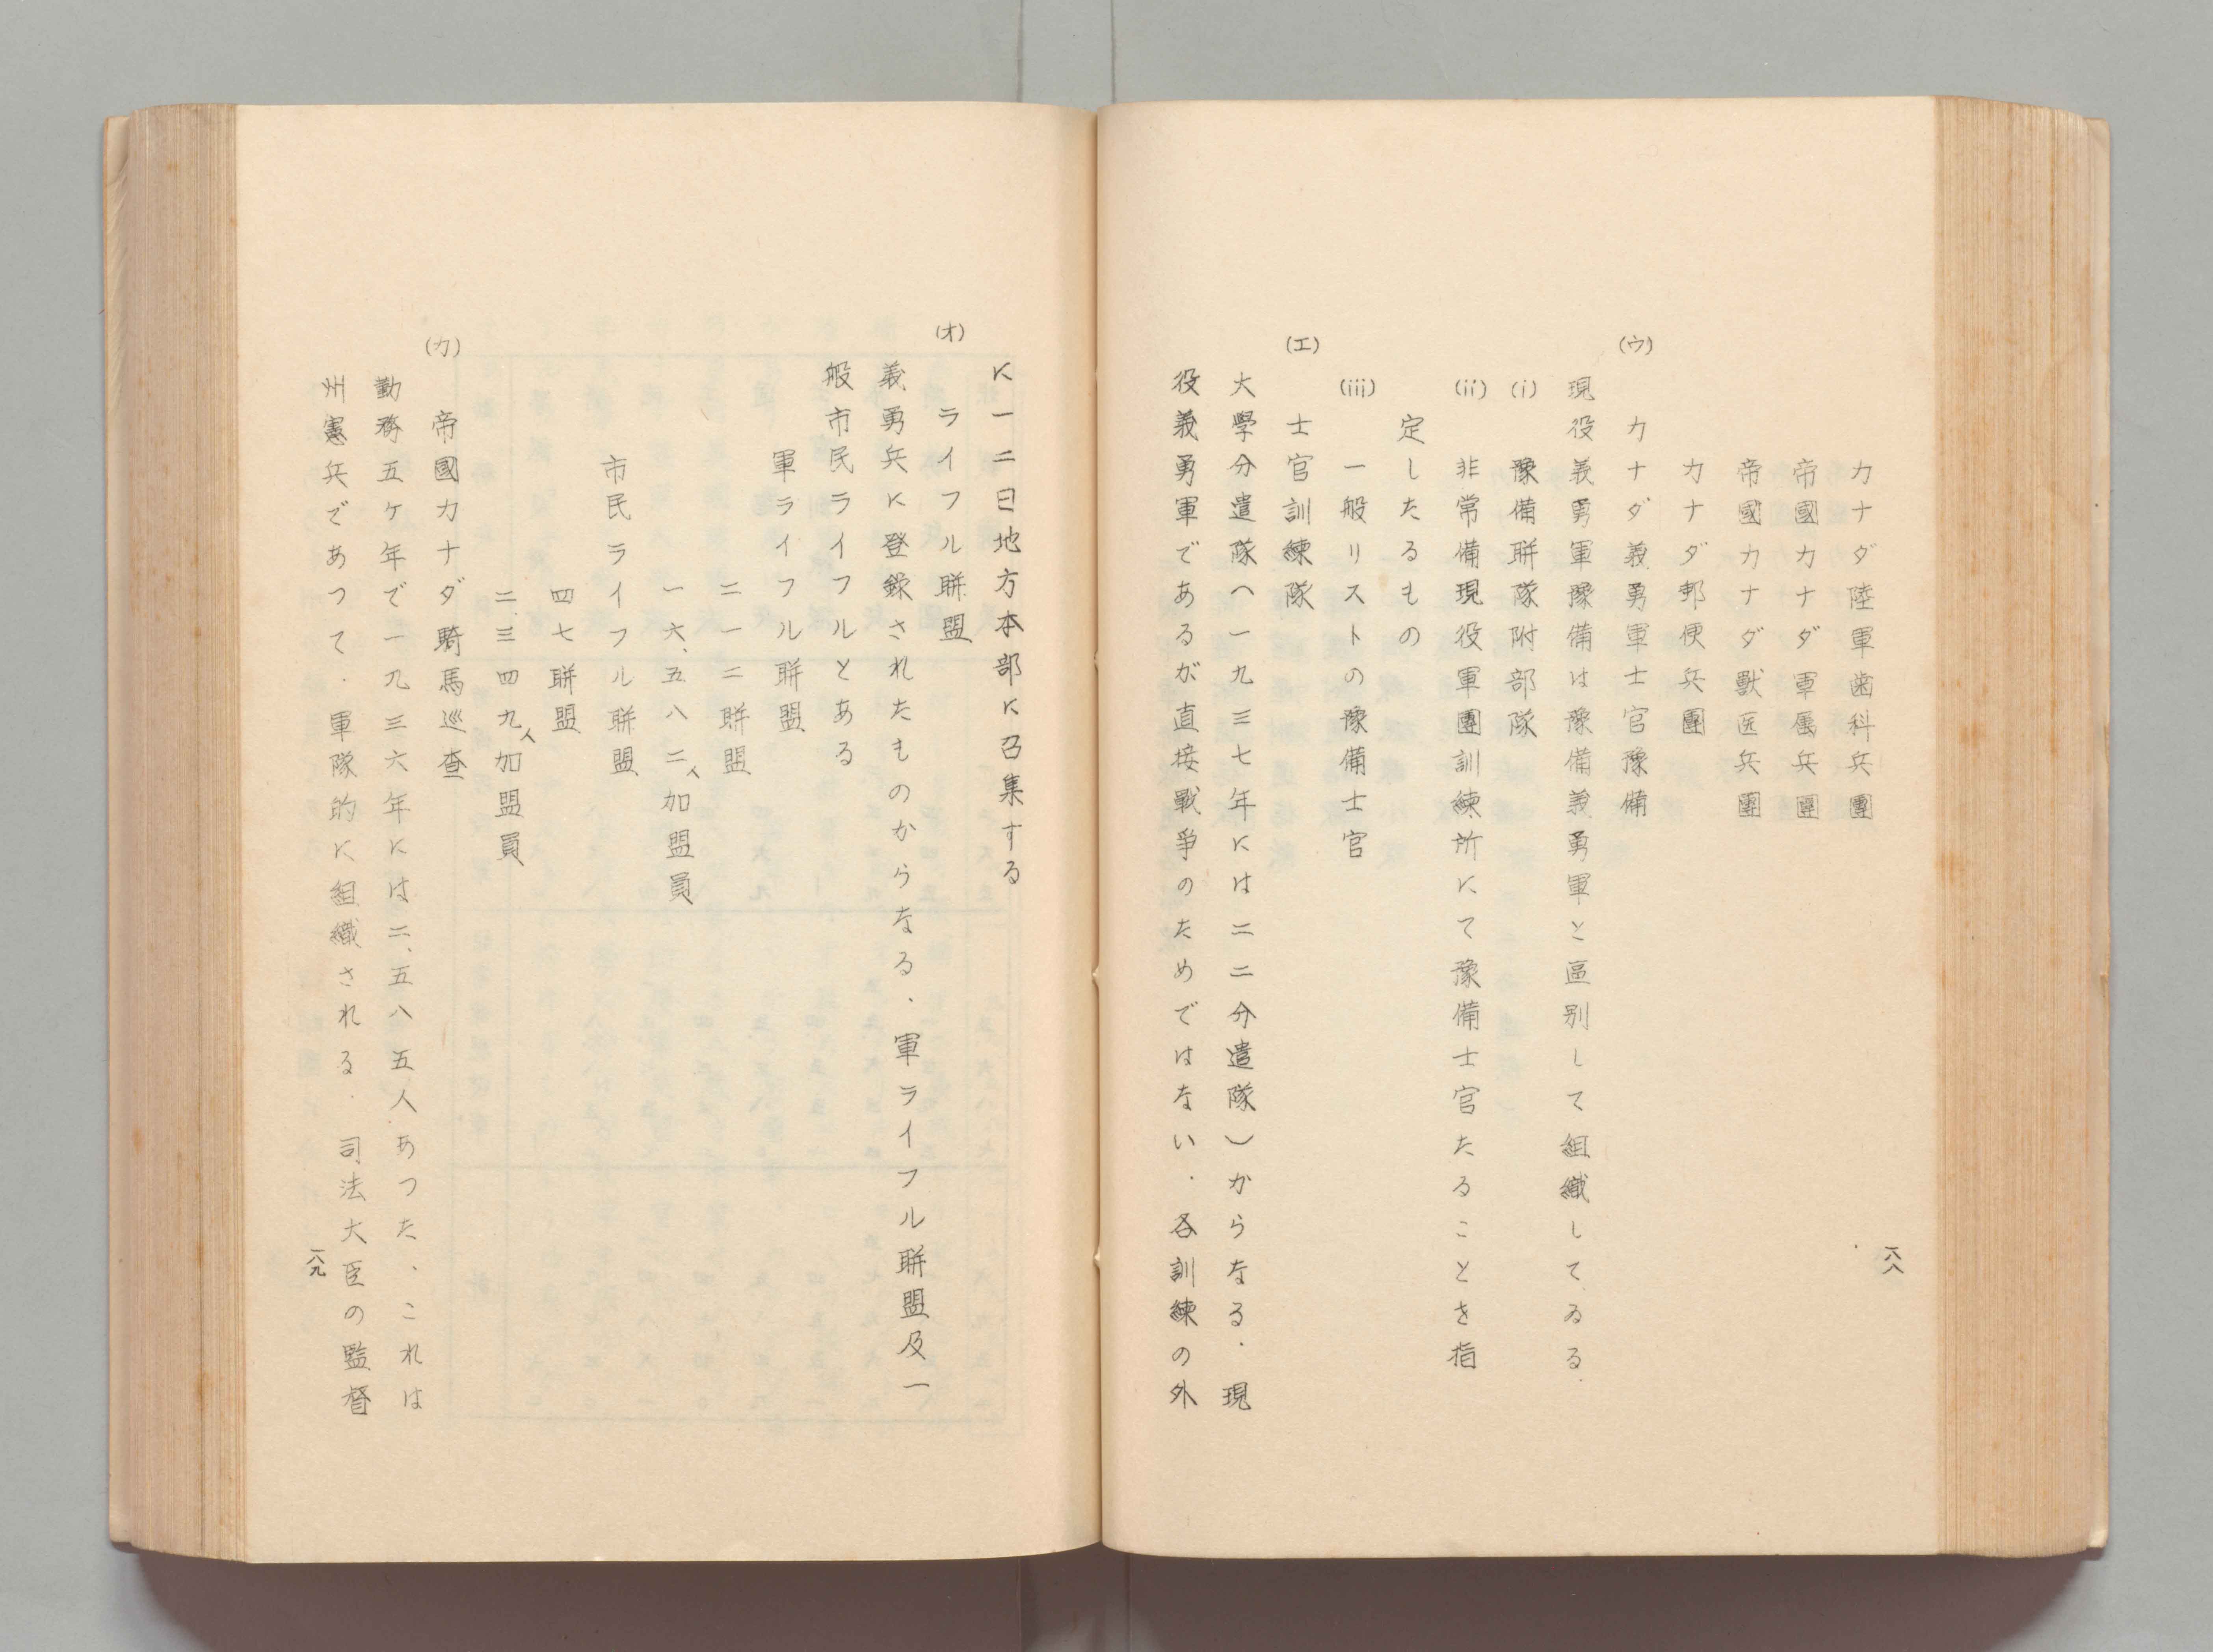 カナダ陸軍歯科兵團
帝國カナダ軍属兵團
帝國カナダ獸医兵團
カナダ郵便兵團
(ウ) カナダ義勇軍士官豫備
現役義勇軍豫備は豫備義勇軍と區别して組織してゐる.
(i) 豫備聯隊附部隊
(ii) 非常備現役軍團訓練所にて豫備士官たることを指
定したるもの
(iii) 一般リストの豫備士官
(エ) 士官訓練隊
大學分遣隊(一九三七年には二二分遣隊)からなる.現
役義勇軍であるが直接戰爭のためではない.各訓練の外
一八八
に一二日地方本部に召集する
(オ) ライフル聯盟
義勇兵に登錄されたものからなる.軍ライフル聯盟及一
般市民ライフルとある
軍ライフル聯盟
二一二聯盟
一六、五八二人加盟員
市民ライフル聯盟
四七聯盟
二、三四九人加盟員
(カ) 帝國カナダ騎馬巡査
勤務五ケ年で一九三六年には二、五八五人あつた、これは
州憲兵であつて.軍隊的に組織される.司法大臣の監督
一八九